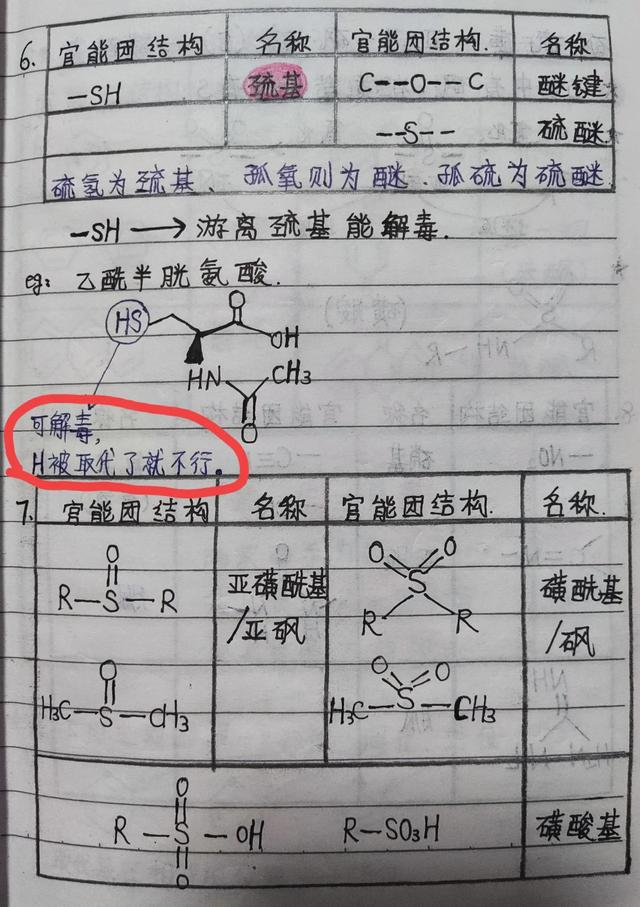 6. 官能团结构 名称 官能团结构. 名称
—SH 巯基 C--O--C 醚键
--S-- 硫醚
硫氢为巯基、孤氧则为醚.孤硫为硫醚
—SH → 游离巯基能解毒.
eg: 乙酰半胱氨酸.
HS O OH
HN CH3
O
可解毒,
H被取代了就不行。
7. 官能团结构 名称 官能团结构. 名称.
O O O
R—S—R 亚磺酰基 S 磺酰基
/亚砜 R R /砜
O O O
H3C—S—CH3 H3C S CH3
O
R—S—OH R—SO3H 磺酸基
O